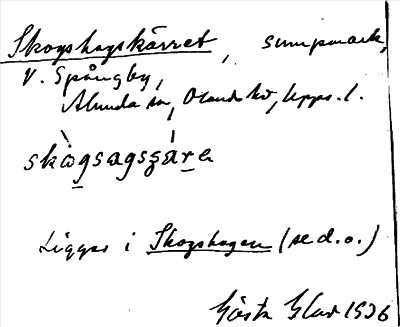 Skogshagskärret, sumpmark,
V. Spångby,
Alunda sn, Olands hd, Upps. l.
skògsagsʒáre
Ligger i Skogshagen (se d.o.)
Gösta Glad 1936